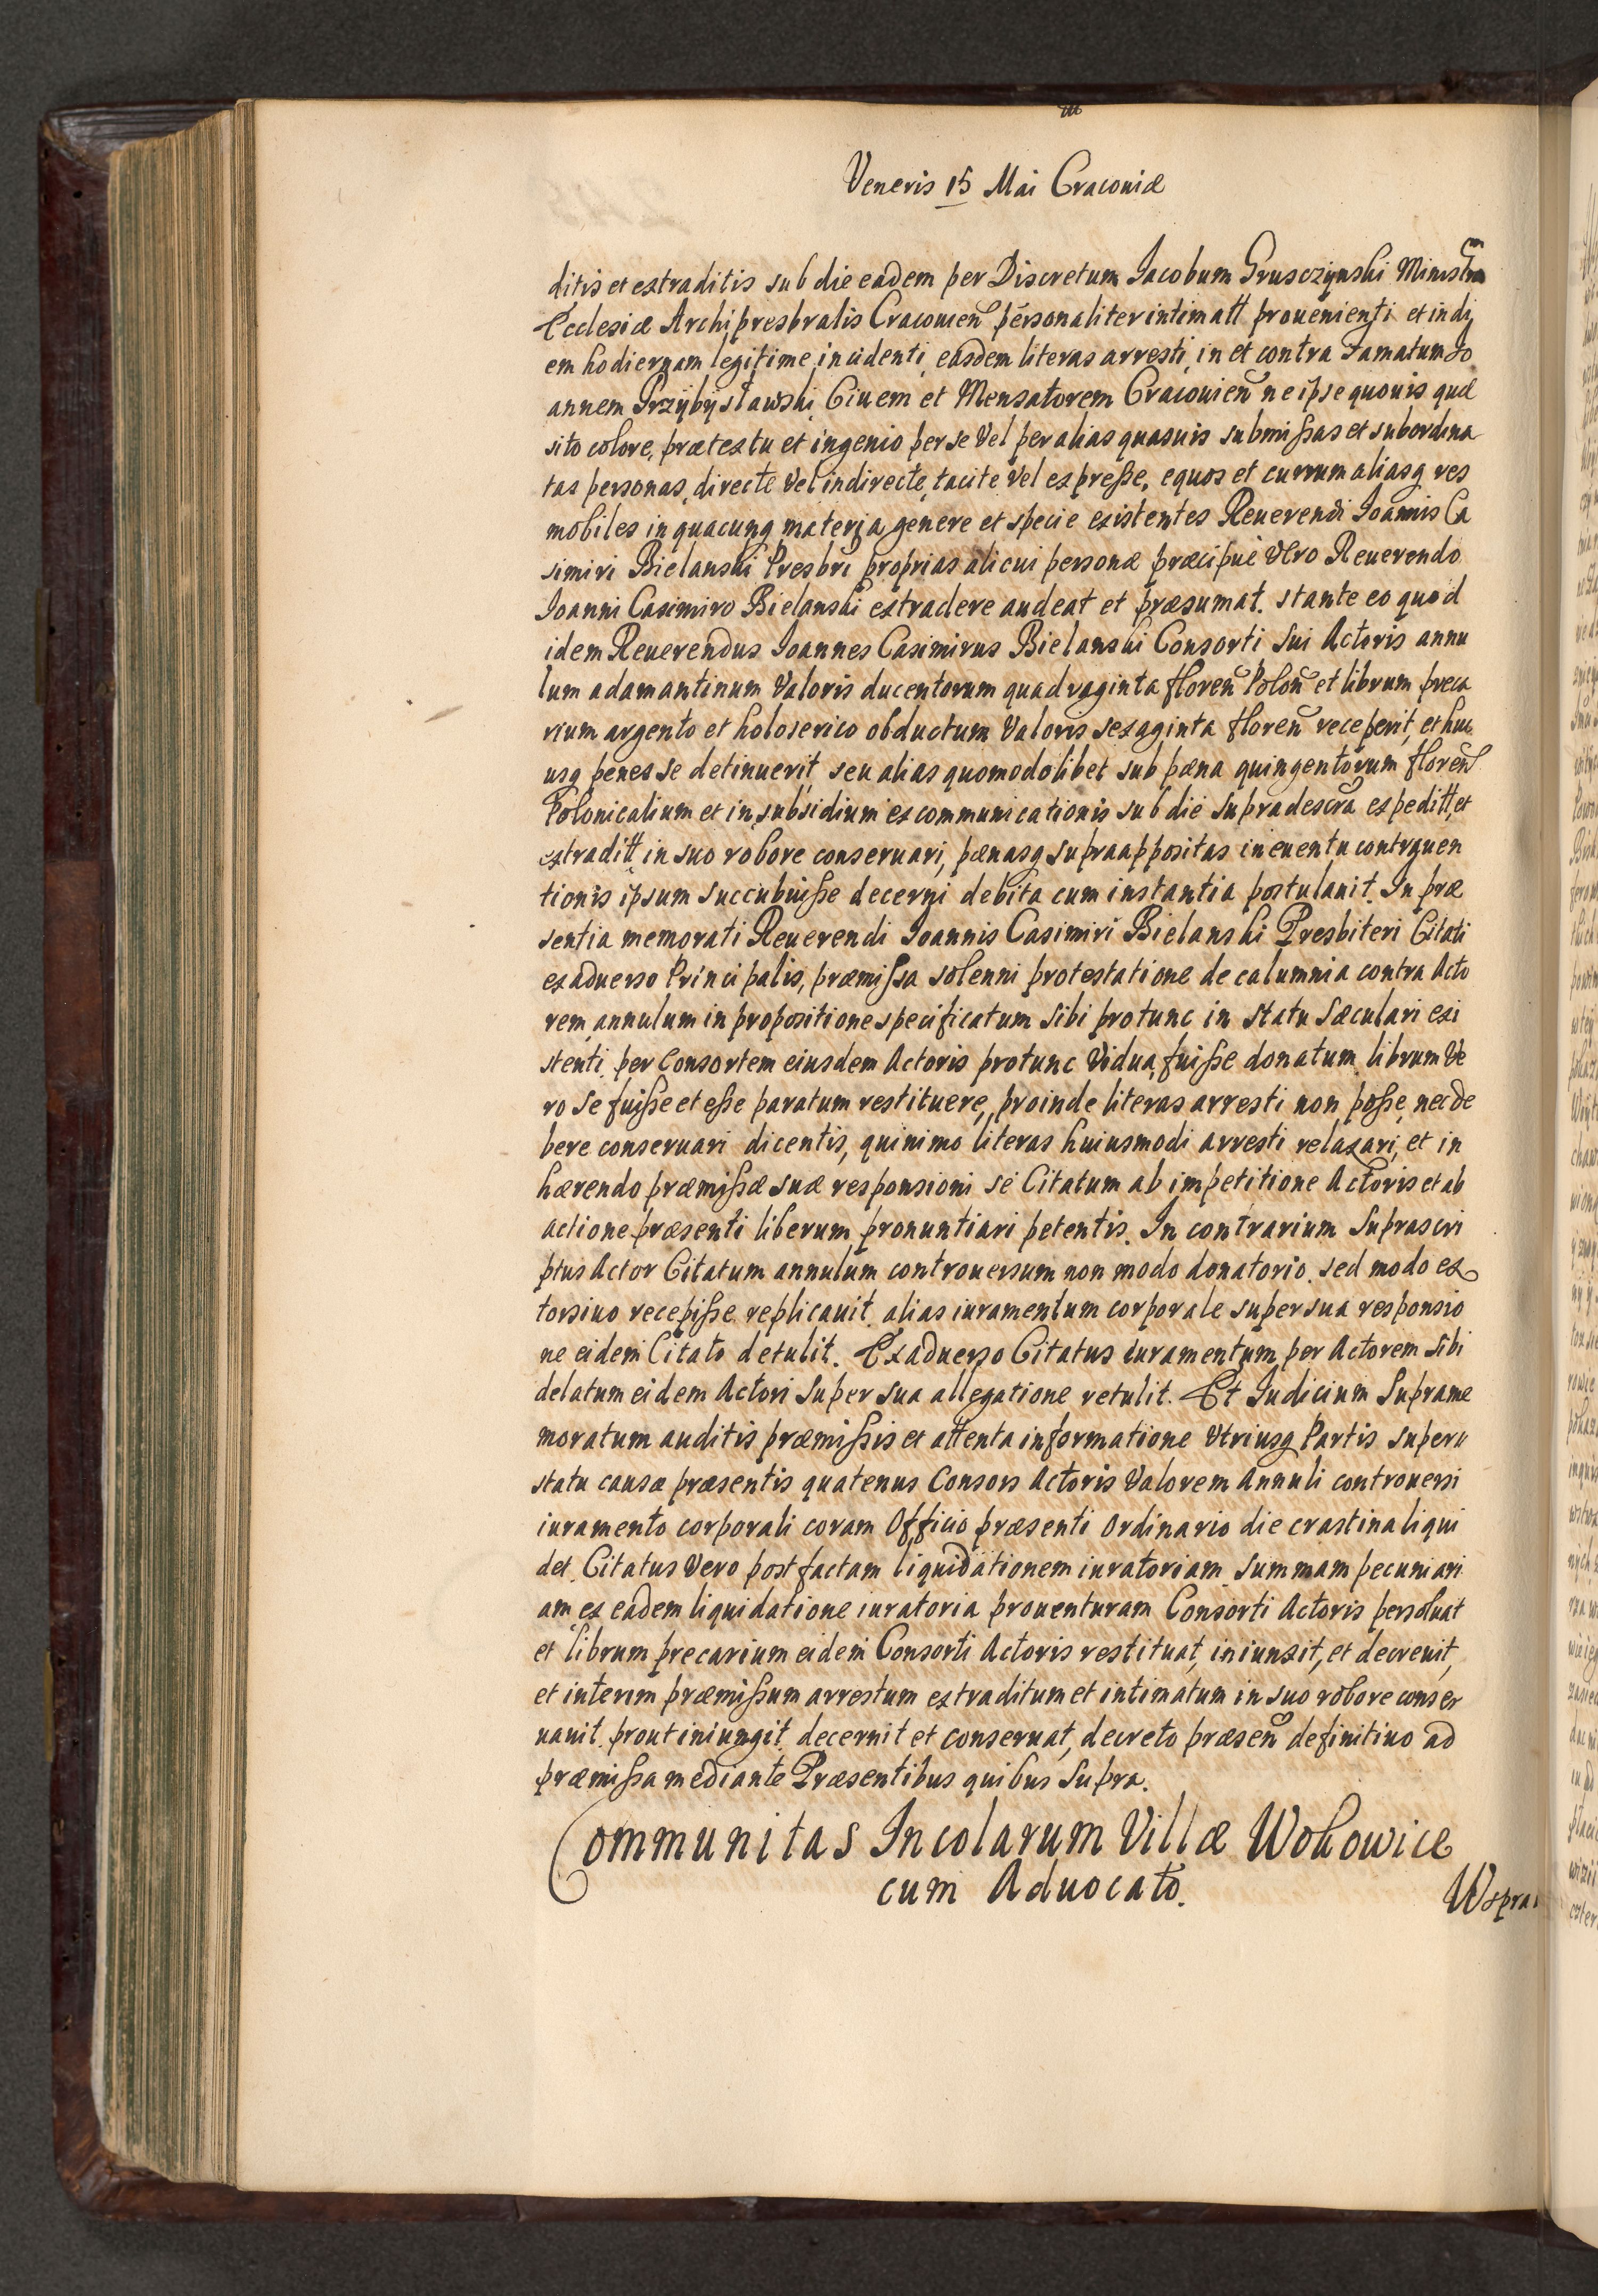 Veneris 15 Mai Cracouiæ
ditis et extraditis sub die eadem per Discretum Jacobum Grusczynski Ministrm
Ecclesiæ Archipresbralis Cracouień personaliter intimatt prouenienti et indi
em hodiernam legitime incidenti, easdem literas arresti, in et contra Famatum Jo
annem Przÿbÿsławski Ciuem et Mensatorem Cracouień ne ipse quouis quæ
sito colore, prætextu et ingenio per se vel per alias quasuis submissas et subordina
tas personas, directe vel indirecte, tacite vel expresse, equos et currum aliasq res
mobiles in quacunq materia, genere et specie existentes Reuerendi Joannis Ca
simiri Bielanski Presbri proprias alicui personæ præcipuè vero Reuerendo
Joanni Casimiro Bielanski extradere audeat et præsumat. stante eo quod
idem Reuerendus Joannes Casimirus Bielanski Consorti sui Actoris annu
lum adamantinum Valoris ducentorum quadraginta floreń Poloń et librum preca
rium argento et holoserico obductum Valoris sexaginta floreń receperit, et huc
usq penes se detinuerit, seu alias quomodolibet sub pæna quingentorum floreń
Polonicalium et in subsidium excommunicationis sub die supradescra expeditt, et
extraditt in suo robore conseruari, pænasq supraappositas in euentu contrauen
tionis ipsum succubuisse decerni debita cum instantia postulauit. In præ
sentia memorati Reuerendi Joannis Casimiri Bielanski Presbiteri Citati
exaduerso Principalis, præmissa solenni protestatione de calumnia contra Acto
rem, annulum in propositione specificatum sibi protunc in statu sæculari exi
stenti per Consortem eiusdem Actoris protunc Vidua, fuisse donatum, librum Ve
ro se fuisse et esse paratum restituere, proinde literas arresti non posse, nec de
bere conseruari dicentis, quinimo literas huiusmodi arresti relaxari, et in
hærendo præmissæ suæ responsioni se Citatum ab impetitione Actoris et ab
actione præsenti liberum pronuntiari petentis. In contrarium Suprascri
ptus Actor Citatum annulum controuersum non modo donatorio, sed modo ex
torsiuo recepisse replicauit, alias iuramentum corporale super sua responsio
ne eidem Citato detulit. Exaduerso Citatus iuramentum per Actorem sibi
delatum eidem Actori super sua allegatione retulit. Et Judicium Suprame
moratum auditis præmissis et attenta informatione Vtriusq Partis super
statu causæ præsentis quatenus Consors Actoris Valorem Annuli controuersi
iuramento corporali coram Officio præsenti ordinario die crastina liqui
det, Citatus Vero post factam liquidationem iuratoriam summam pecuniari
am ex eadem liquidatione iuratoria prouenturam Consorti Actoris persoluat
et librum precarium eidem Consorti Actoris restituat, iniunxit, et decreuit,
et interim præmissum arrestum extraditum et intimatum in suo robore conser
uauit, prout iniungit, decernit et conseruat, decreto præseń definitiuo ad
præmissa mediante Præsentibus quibus supra.
Communitas Incolarum Villæ Wolowice
cum Aduocato.